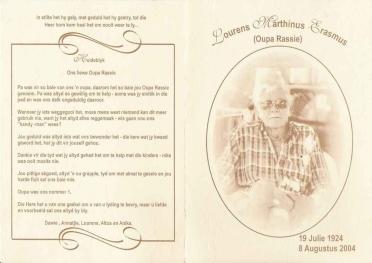 In stilte het hy gely, met geduld het hy gestry, tot die
Heer hom kom haal het om nooit weer te ly...
Huldeblyk
Ons liewe Oupa Rassie
Pa was vir so baie van ons 'n oupa, daarom het so baie jou Oupa Rassie
genoem. Pa was altyd so gewillig om te help - soms was jy omtrent in die
pad en was ons dalk ongeduldig daaroor.
Wanneer jy iets weggegooi het, moes mens want niemand kan dit meer
gebruik nie, want jy het altyd alles reggemaak - wie gaan nou ons
"handy man" wees?
Jou geduld was altyd iets wat ons bewonder het - die kere wat jy kwaad
geword het, het jy dit vir jouself gehou.
Dankie vir die tyd wat jy altyd gehad het om te help met die kinders - niks
was ooit moeite nie.
Jou pittige sêgoed, altyd 'n ou grappie, tyd om met almal te gesels en jou
harde fluit sal ons baie mis.
Oupa was ons nommer 1.
Die Here het u van ons geskei om u van u lyding te bevry, maar u liefde
en voorbeeld sal ons altyd by bly.
Dawie, Annatjie, Lourens, Altza en Anika.
Lourens Marthinus Erasmus
(Oupa Rassie)
19 Julie 1924
8 Augustus 2004